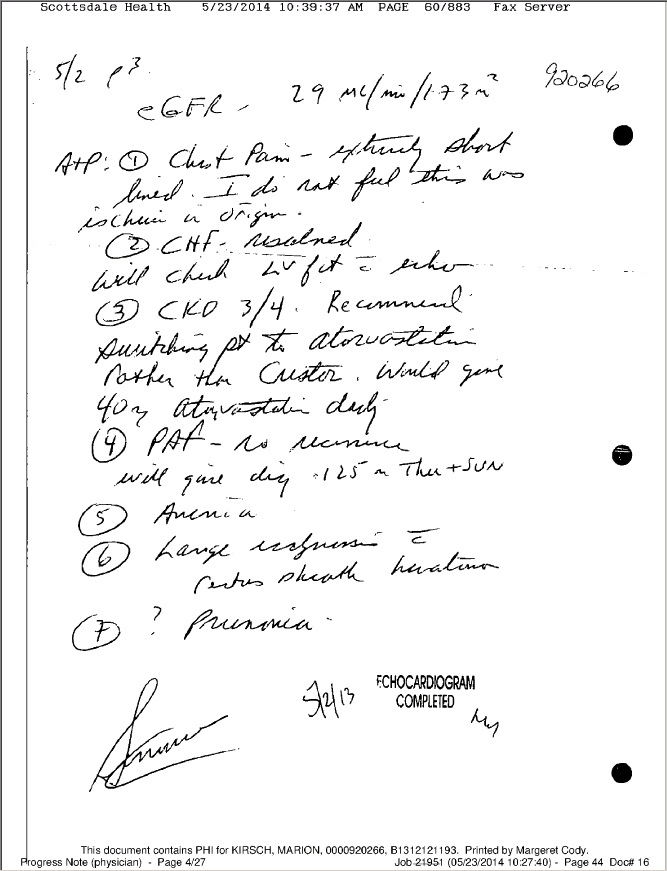 Scottsdale Health 5/23/2014 10:39:37 AM PAGE 60/883 Fax Server
5/2 p3.
920266
eGFR - 29 ML/min/1.73 m2
A+P: ① Chest Pain - extremely short
lived. I do not feel this was
ischemic in origin.
② CHF - resolved
will check LV fct c̄ echo
③ CKD 3/4. Recommend
switching pt to atorvastatin
rather than Crestor. Would give
40 mg atorvastatin daily
④ PAF - no recurrence
will give dig .125 on Thu + SUN
⑤ Anemia
⑥ Large c̄
rectus sheath hematoma
⑦ ? Pneumonia.
5/2/13
ECHOCARDIOGRAM
COMPLETED
This document contains PHI for KIRSCH, MARION, 0000920266, B1312121193. Printed by Margeret Cody.
Progress Note (physician) - Page 4/27 Job 21951 (05/23/2014 10:27:40) - Page 44 Doc# 16